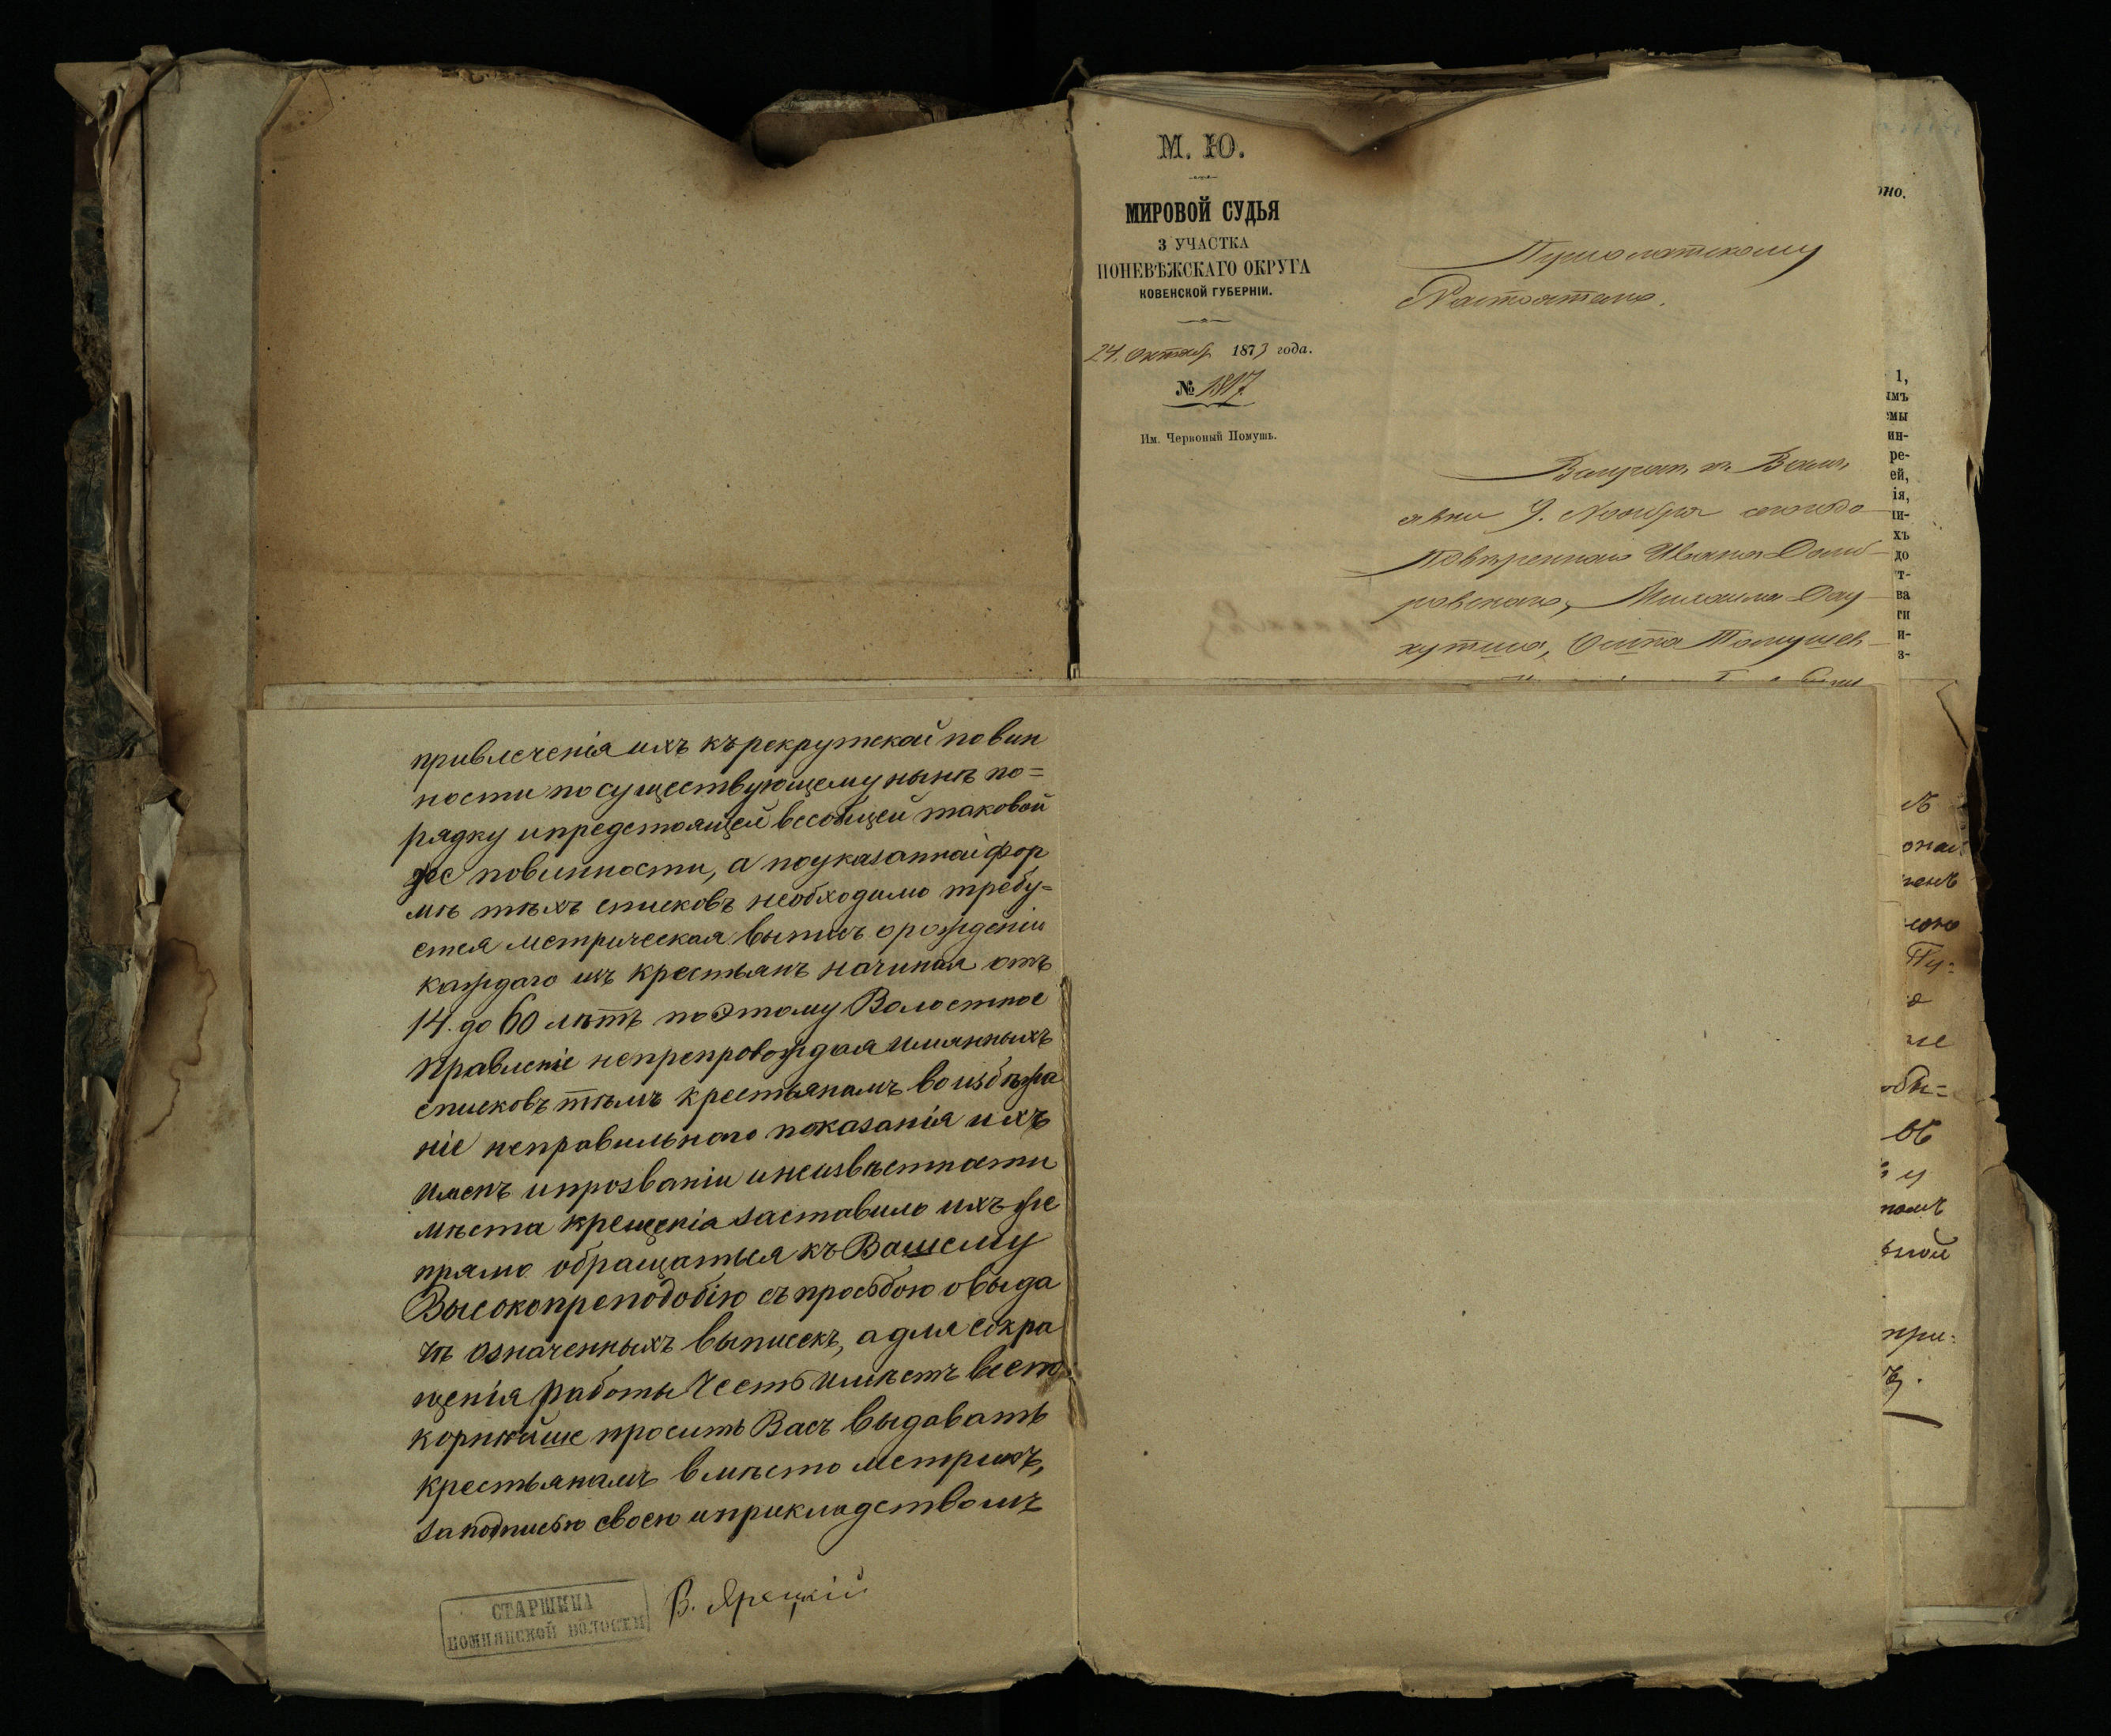 М. Ю.
МИРОВОЙ СУДЬЯ
3 УЧАСТКА
ПОНЕВѢЖСКАГО ОКРУГА
КОВЕНСКОЙ ГУБЕРНІИ.
24. Октябр 1873 года.
№ 1817.
Им. Червоный Помушь.
Настоятелю.
явки 9. Ноября
повѣреннаго Ивана Домб-
ровскаго,
Осипа
привлеченія ихъ къ рекрутской повин
ности по существующему нынѣ по=
рядку и предстоящей всеобщей таковой
же повинности, а по указанной фор
мѣ тѣхъ списковъ необходимо требу=
ется метрическая выпись о рожденіи
каждаго изъ крестьянъ начиная отъ
14. до 60 лѣтъ поэтому Волостное
Правленіе непрепровождая имянныхъ
списковъ тѣмъ крестьянамъ во избѣжа
ніе неправильнаго показанія ихъ
именъ и прозваніи и неизвѣстности
мѣста крещенія заставило ихъ же
прямо обращаться къ Вашему
Высокопреподобію съ просьбою о выда
чѣ означенныхъ выписекъ, а для сокра
щенія работы Честь имѣетъ всепо
корнѣйше просить Васъ выдавать
крестьянамъ вмѣсто метрикъ,
за подписью своею и прикладствомъ
СТАРШИНА
ПОМНЯНСКОЙ ВОЛОСТИ
В. Ярецкій
оно.
1,
ымъ
емы
ин-
ре-
ей,
ія,
хъ
до
т-
ва
ги
и-
з-
Пу=
при=